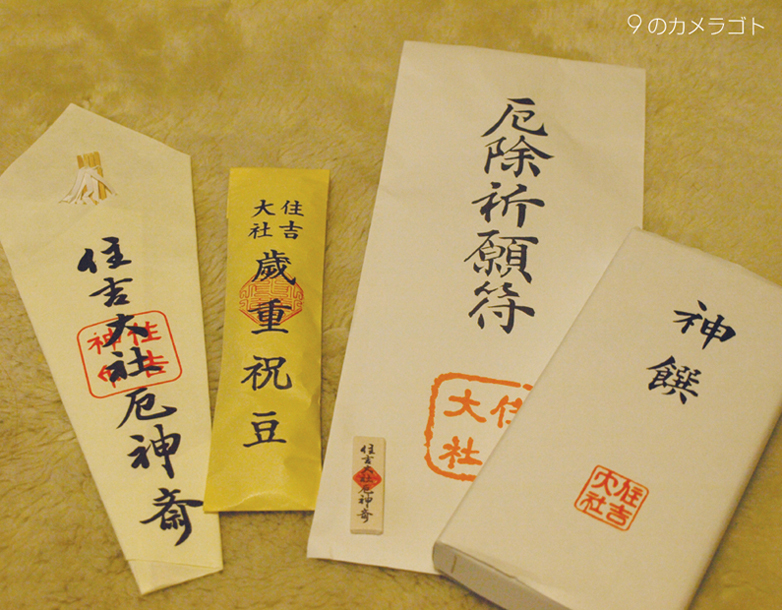 9のカメラゴト
住吉大社厄神斎
住吉
住吉
大社
歲重祝豆
厄除祈願符
住
大社
住吉大社厄神斎
神饌
住吉
大社